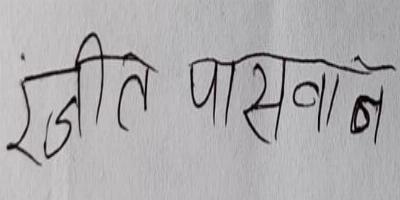 रंजीत पासवान